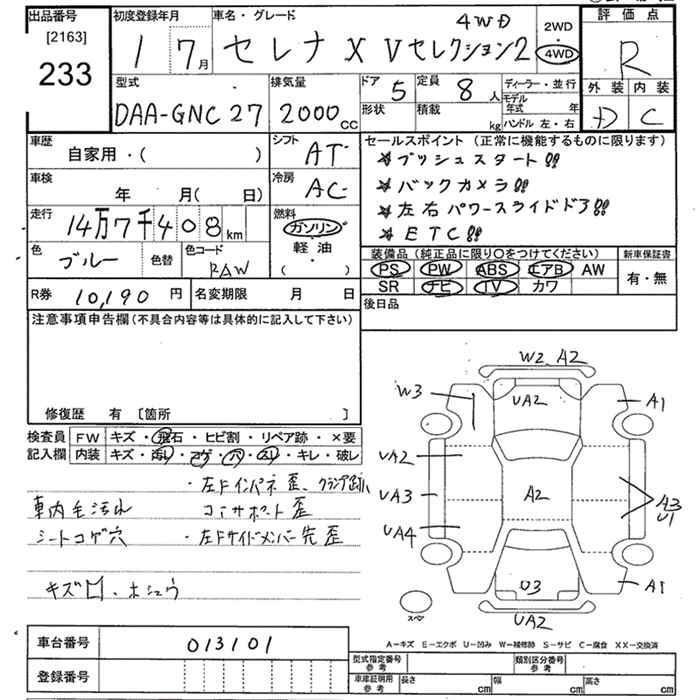 出品番号 初度登録年月 車名・グレード 4WD 2WD 評価点
[2163]
233 1 7月 セレナ X Vセレクション2 4WD R
型式 排気量 ドア 5 定員 8人 ディーラー・並行 外装 内装
DAA-GNC27 2000cc 形状 積載 kg モデル年式 年 D C
ハンドル 左・右
車歴 シフト セールスポイント(正常に機能するものに限ります)
自家用・( ) AT プッシュスタート!!
車検 冷房 バックカメラ!!
年 月( 日) AC 左右パワースライドドア!!
走行 14万7千408km 燃料 ガソリン ETC!!
軽油
・( )
色 ブルー 色替 色コード RAW 装備品(純正品に限り○をつけてください) 新車保証書
PS PW ABS エアB AW 有・無
R券 10,190円 名変期限 月 日 SR ナビ TV カワ
後日品
注意事項申告欄(不具合内容等は具体的に記入して下さい)
修復歴 有 [箇所 ]
W2 A2
W3 UA2 A1
UA2
UA3 A2 A3
U1
UA4
U3 A1
UA2
スペア
検査員 FW キズ・飛石・ヒビ割・リペア跡・×要
記入欄 内装 キズ・汚れ・コゲ・穴・スレ・キレ・破レ
・左Fインパネ歪、クランプ跡
車内毛汚れ コアサポート歪
シートコゲ穴 ・左Fサイドメンバー先歪
キズ凹、ホシュウ
A-キズ E-エクボ U-凹み W-補修跡 S-サビ C-腐食 XX-交換済
車台番号 013101
登録番号
型式指定番号 参考 類別区分番号 参考
車庫証明用 参考 長さ cm 幅 cm 高さ cm